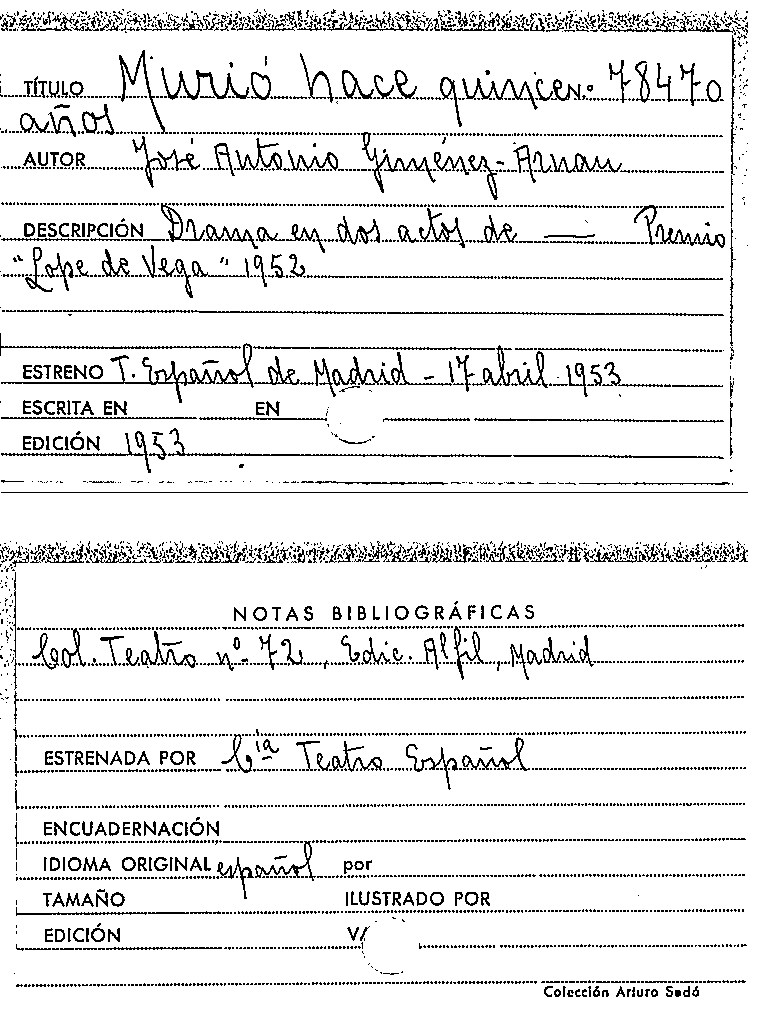 TÍTULO Murió hace quince N.º 78470
años
AUTOR José Antonio Giménez-Arnau
DESCRIPCIÓN Drama en dos actos de — Premio
"Lope de Vega" 1952
ESTRENO T. Español de Madrid - 17 abril 1953
ESCRITA EN EN
EDICIÓN 1953
NOTAS BIBLIOGRÁFICAS
Col. Teatro nº 72, Edic. Alfil, Madrid
ESTRENADA POR Cía Teatro Español
ENCUADERNACIÓN
IDIOMA ORIGINAL español por
TAMAÑO ILUSTRADO POR
EDICIÓN
Colección Arturo Sedó